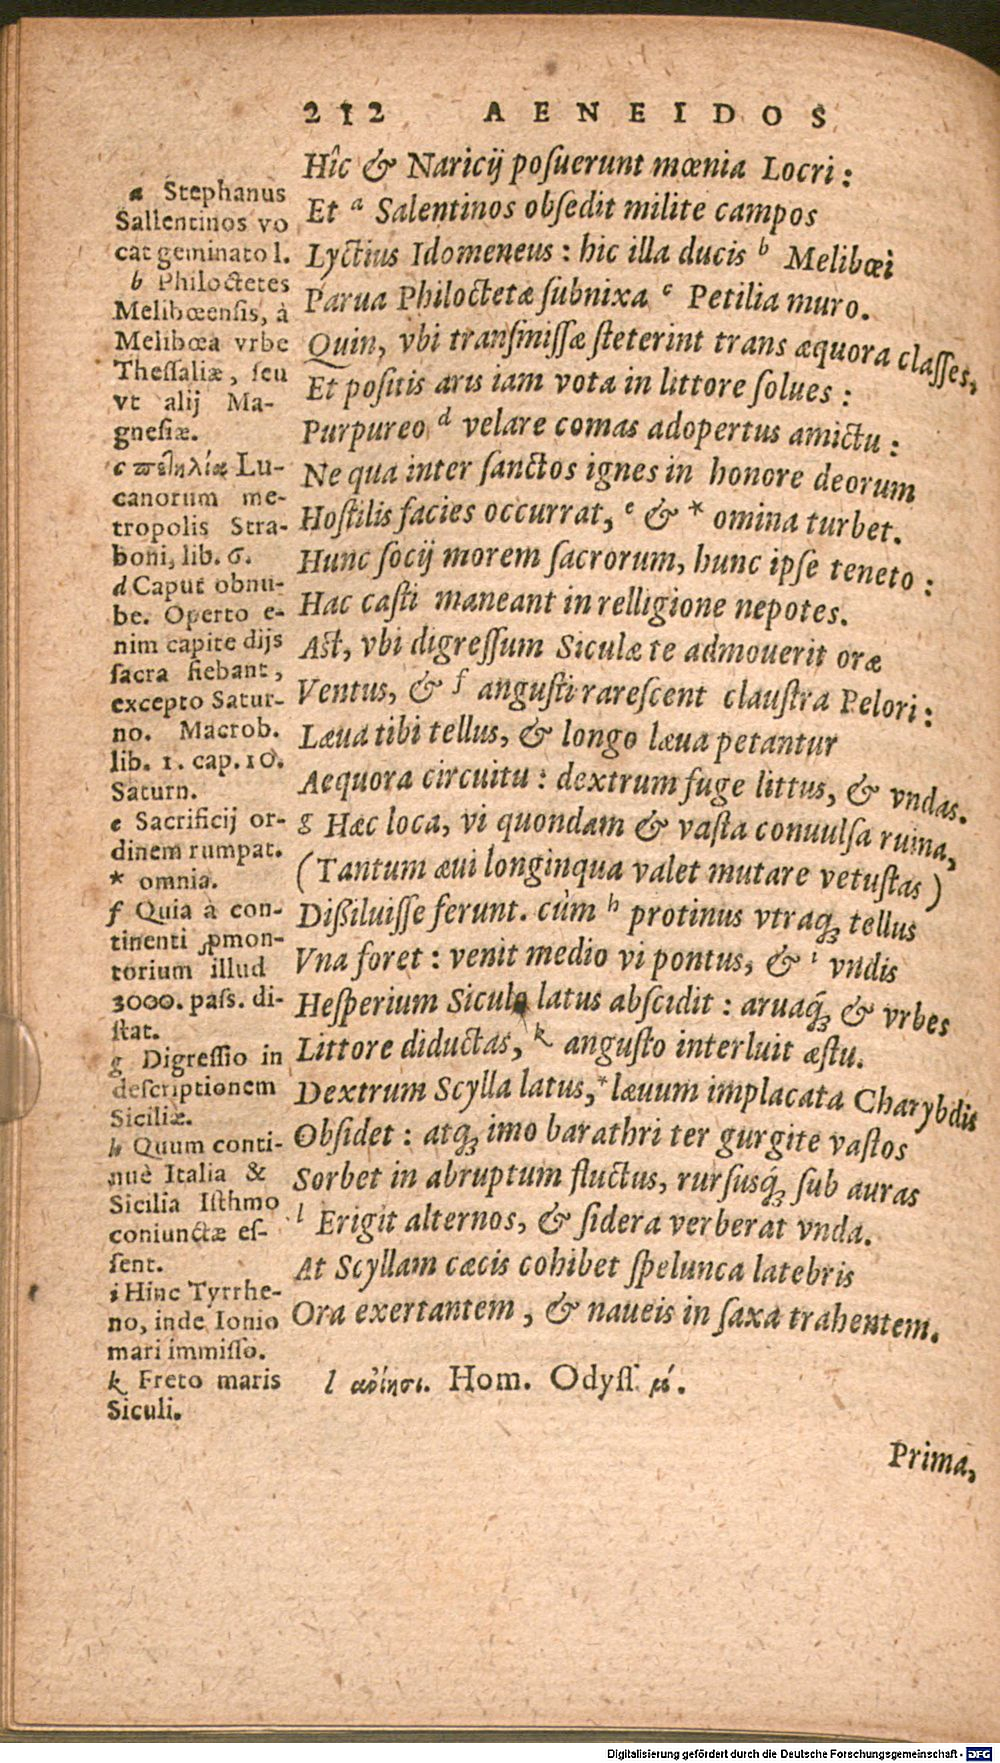 212 AENEIDOS
Hîc & Naricij posuerunt mœnia Locri:
Et a Salentinos obsedit milite campos
Lyctius Idomeneus: hic illa ducis b Melibœi
Parua Philoctetæ subnixa c Petilia muro.
Quin, vbi transmissæ steterint trans æquora classes,
Et positis aris iam vota in littore solues:
Purpureo d velare comas adopertus amictu:
Ne qua inter sanctos ignes in honore deorum
Hostilis facies occurrat, e & * omina turbet.
Hunc socij morem sacrorum, hunc ipse teneto:
Hac casti maneant in relligione nepotes.
Ast, vbi digressum Siculæ te admouerit oræ
Ventus, & f angusti rarescent claustra Pelori:
Læua tibi tellus, & longo læua petantur
Aequora circuitu: dextrum fuge littus, & vndas.
g Hæc loca, vi quondam & vasta conuulsa ruina,
(Tantum æui longinqua valet mutare vetustas)
Dißiluisse ferunt. cùm h protinus vtraq; tellus
Vna foret: venit medio vi pontus, & i vndis
Hesperium Siculo latus abscidit: aruaq́; & vrbes
Littore diductas, k angusto interluit æstu.
Dextrum Scylla latus, * læuum implacata Charybdis
Obsidet: atq; imo barathri ter gurgite vastos
Sorbet in abruptum fluctus, rursusq́; sub auras
l Erigit alternos, & sidera verberat vnda.
At Scyllam cæcis cohibet spelunca latebris
Ora exertantem, & naueis in saxa trahentem.
a Stephanus
Sallentinos vo
cat geminato l.
b Philoctetes
Melibœensis, à
Melibœa vrbe
Thessaliæ, seu
vt alij Ma-
gnesiæ.
c πετηλίαι Lu-
canorum me-
tropolis Stra-
boni, lib. 6.
d Caput obnu-
be. Operto e-
nim capite dijs
sacra fiebant,
excepto Satur-
no. Macrob.
lib. 1. cap. 10.
Saturn.
e Sacrificij or-
dinem rumpat.
* omnia.
f Quia à con-
tinenti ꝓmon-
torium illud
3000. pass. di-
stat.
g Digressio in
descriptionem
Siciliæ.
h Quum conti-
nuè Italia &
Sicilia Isthmo
coniunctæ es-
sent.
i Hinc Tyrrhe-
no, inde Ionio
mari immisso.
k Freto maris
Siculi.
l Hom. Odyss. μ́.
Prima,
Digitalisierung gefördert durch die Deutsche Forschungsgemeinschaft - DFG